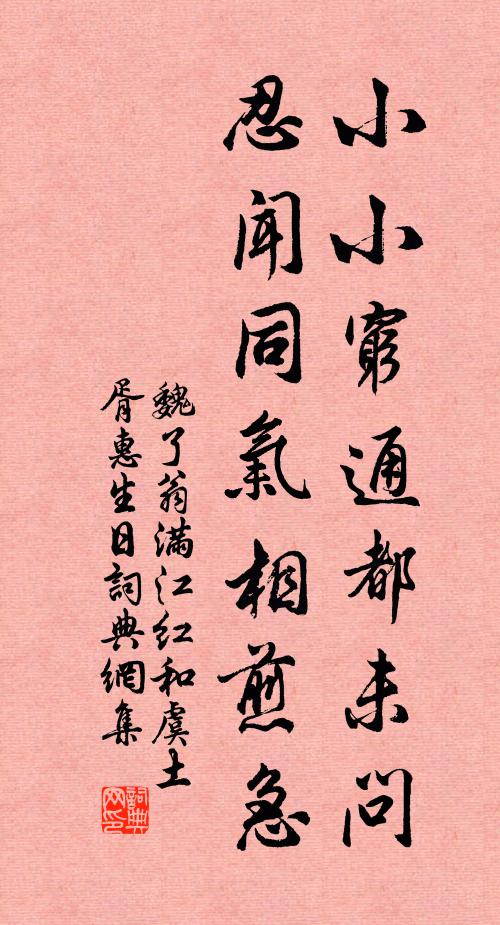 小小窮通都未問
忍聞同氣相煎急
魏了翁滿江红和虞土
胥惠生日詞典網集
詞典网印